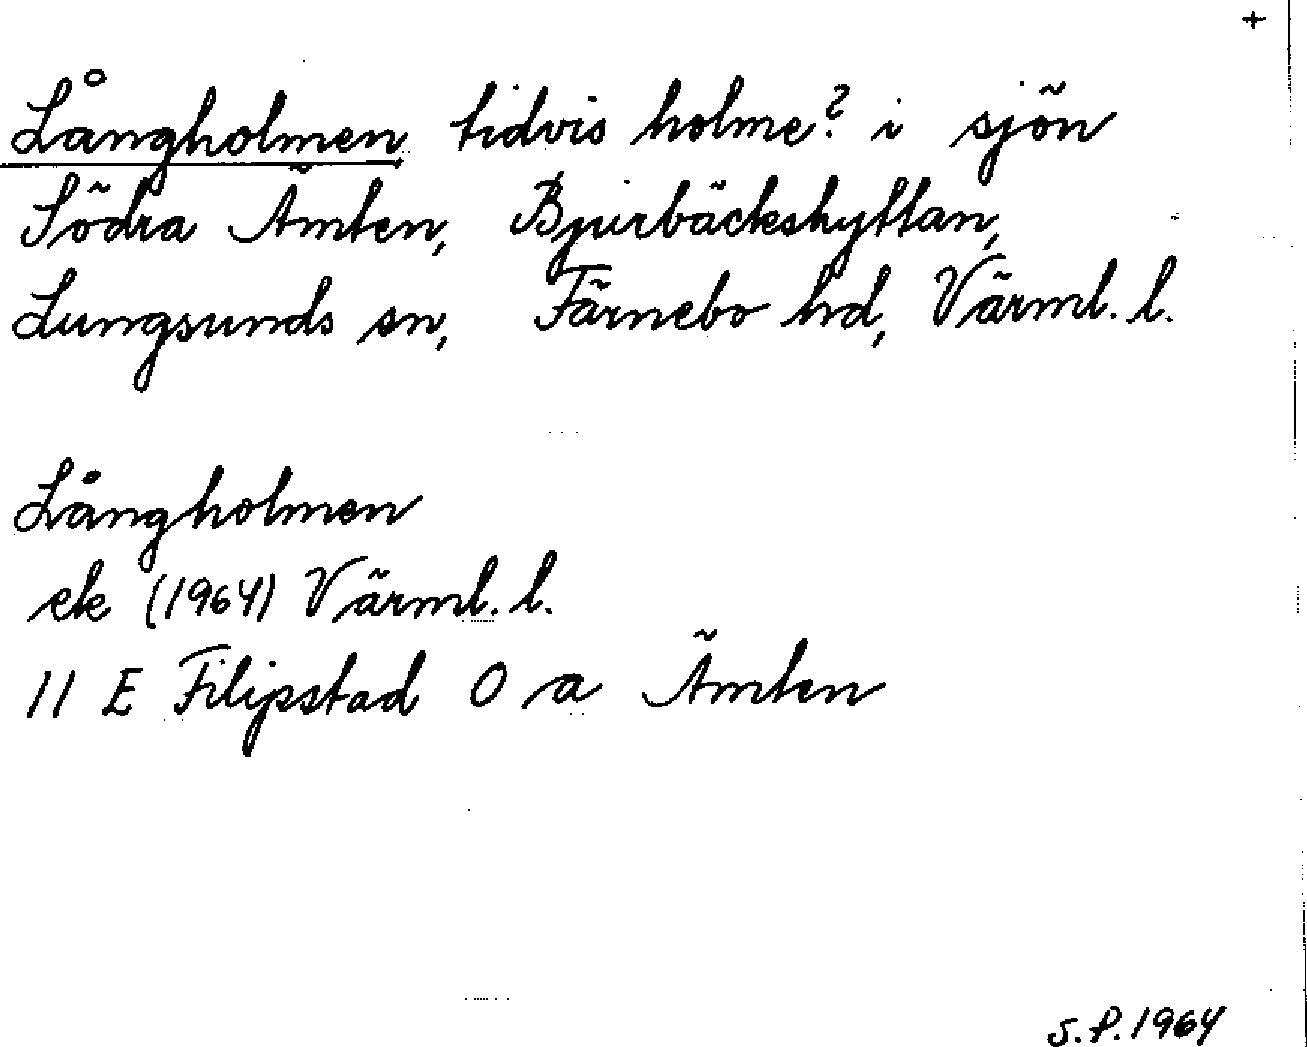 +
Långholmen tidvis holme? i sjön
Södra Ämten, Bjurbäckshyttan,
Lungsunds sn, Färnebo hd, Värml. l.
Långholmen
ek (1964) Värml. l.
11 E Filipstad 0 a Ämten
S.P. 1964